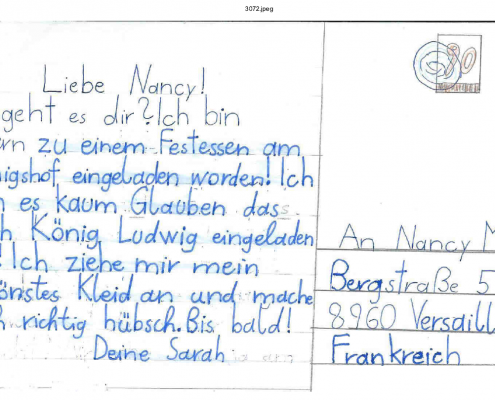 3072.jpeg
90
Liebe Nancy!
geht es dir? Ich bin
zu einem Festessen am
eingeladen worden! Ich
es kaum Glauben das
König Ludwig eingeladen
! Ich ziehe mir mein
Kleid an und mache
richtig hübsch. Bis bald!
Deine Sarah
An Nancy M
Bergstraße 5
8960 Versaill
Frankreich